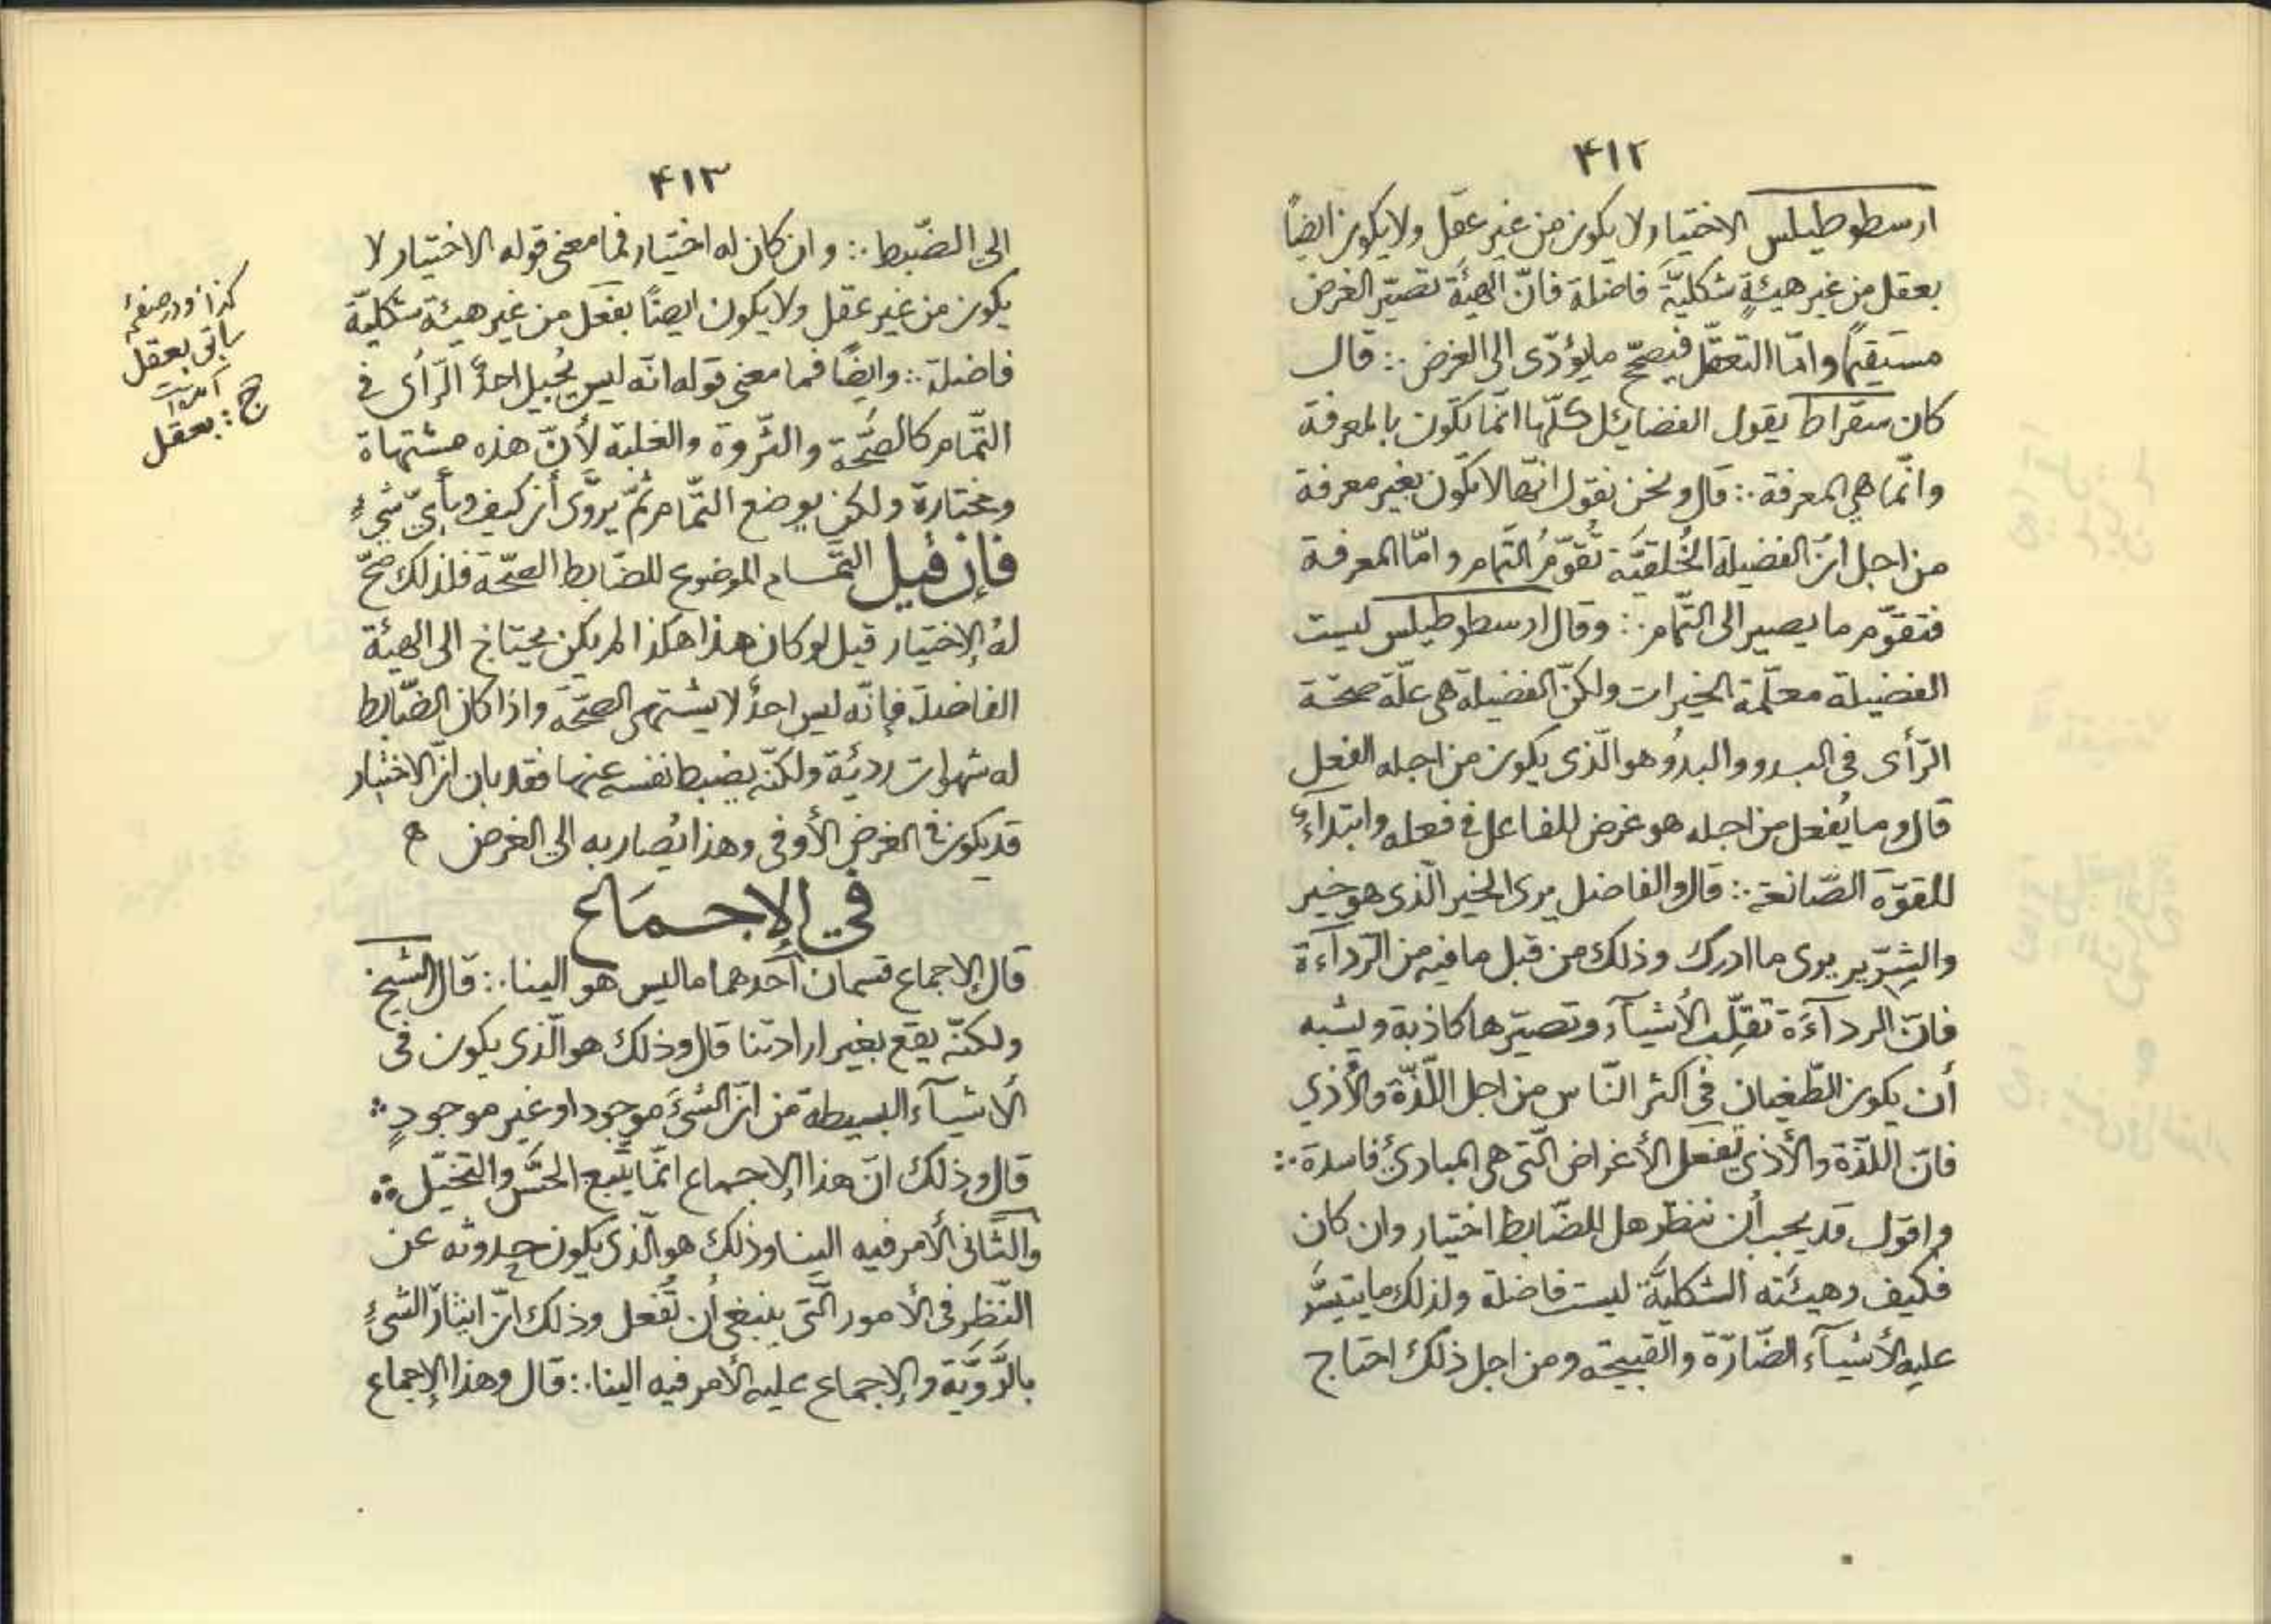 ۴۱۲
ارسطوطيلس الاختيار ولا يكون من غير عقل ولا يكون ايضاً
بعقل من غير هيئةٍ شكليّة فاضلة فانّ الهيئة تصيّر الغرض
مستقيماً وامّا التعقّل فيصحّح ما يؤدّى الى الغرض ∴ قال
كان سقراط يقول الفضايئل كلّها انّما تكون بالمعرفة
وانّما هي المعرفة ∴ قال ونحن نقول انّها لا تكون بغير معرفة
من اجل انّ الفضيلة الخُلقيّة تُقوّمُ التّمام وامّا المعرفة
فتقوّم ما يصير الى التّمام ∴ وقال ارسطوطيلس ليست
الفضيلة معلّمة الخيرات ولكنّ الفضيلة هى علّة صحّة
الرّأى فى البدو والبدوُ هو الّذى يكون من اجله الفعل
قال وما يُفعل من اجله هو غرض للفاعل فى فعله وابتداءٍ
للقوّة الصّانعة ∴ قال والفاضل يرى الخير الّذى هو خير
والشِرّير يرى ما ادرك وذلك من قبل ما فيه من الرّداءَة
فانّ الرداءَة تقلّب الأشيآء وتصيّرها كاذبة ويشبه
أن يكون الطّغيان فى اكثر النّاس من اجل اللّذّة والأذي
فانّ اللّذّة والأذى تفعل الأغراض الّتى هى المبادئ فاسدة ∴
واقول قد يجب أن ننظر هل للضّابط اختيار وان كان
فكيف وهيئته الشكليّة ليست فاضلة ولذلك ما يتيسّر
عليه الأشيآء الضّارّة والقبيحة ومن اجل ذلك احتاج
۴۱۳
الى الضّبط ∴ وان كان له اختيار فما معنى قوله الاختيار لا
يكون من غير عقل ولا يكون ايضاً بفعل من غير هيئة شكليّة
فاضلة ∴ وايضاً فما معنى قوله انّه ليس يُجيل احدٌ الرّأى فى
التّمام كالصّحّة والثّروة والغلبة لأنّ هذه مشتهاة
ومختارة ولكن يوضع التّمام ثمّ يروّى أن كيف وبأىّ شىءٍ
فإن قيل التّمام الموضوع للضّابط الصّحّة فلذلك صحّ
لهُ الإختيار قيل لو كان هذا هكذا لم يكن يحتاج الى الهيئة
الفاضلة فإنّه ليس احدٌ لا يشتهى الصحّة واذا كان الضّابط
له شهوات رديّة ولكنّه يضبط نفسه عنها فقد بان انّ الاختيار
قد يكون فى الغرض الأوفى وهذا يُصار به الى الغرض ه
في الإجماع
قال الإجماع قسمان أحدهما ما ليس هو الينا ∴ قال الشيخ
ولكنّه يقع بغير ارادتنا قال وذلك هو الّذى يكون فى
الأشيآء البسيطة من انّ الشىَٔ موجود او غير موجودٍ ∴
قال وذلك انّ هذا الإجماع انّما يتّبع الحسّ والتخيّل ∴
والثّانى الأمر فيه الينا وذلك هو الّذى يكون حدوثه عن
النّظر فى الأمور الّتى ينبغى أن تُفعل وذلك انّ ايثار الشىٔ
بالرّويّة والإجماع عليه الأمر فيه الينا ∴ قال وهذا الإجماع
كذا ودر صفحهٔ
سابق بعقل
آمده است
ج: بعقل